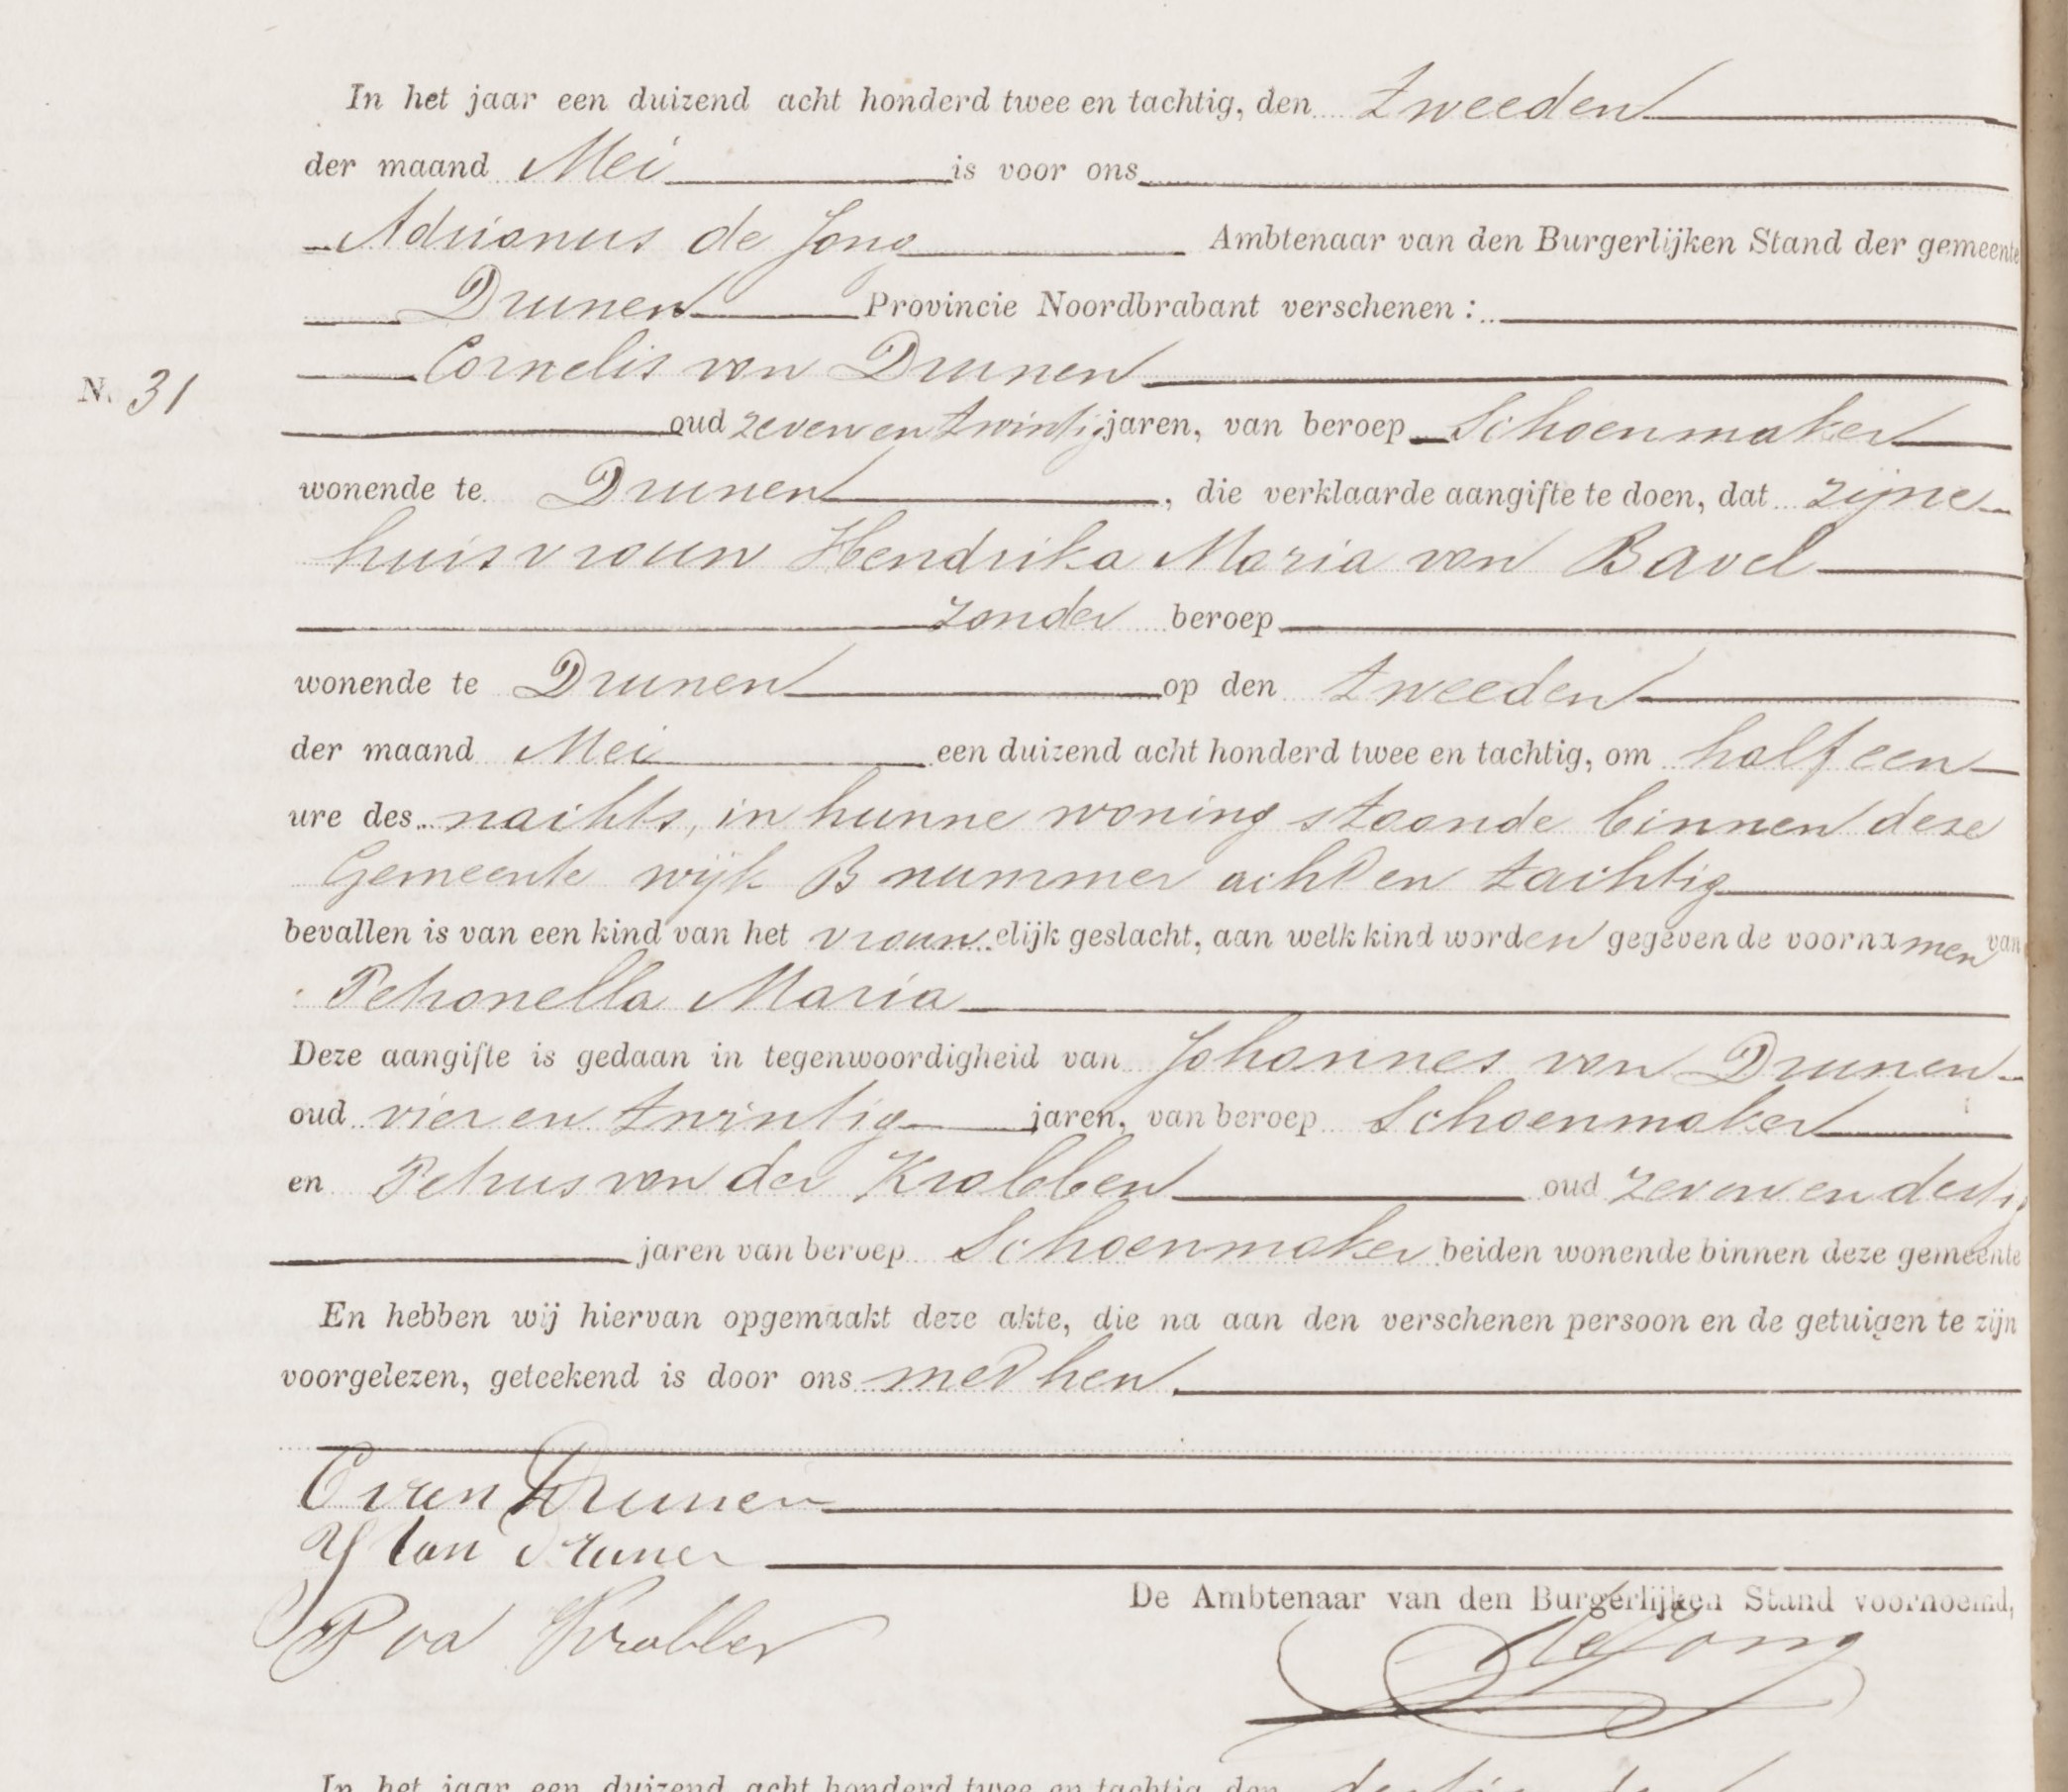 In het jaar een duizend acht honderd twee en tachtig, den tweeden
der maand Mei is voor ons
Adrianus de Jong Ambtenaar van den Burgerlijken Stand der gemeente
Drunen Provincie Noordbrabant verschenen:
Cornelis van Drunen
N. 31
oud zeven en twintig jaren, van beroep Schoenmaker
wonende te Drunen, die verklaarde aangifte te doen, dat zijne
huisvrouw Hendrika Maria van Bavel
zonder beroep
wonende te Drunen op den tweeden
der maand Mei een duizend acht honderd twee en tachtig, om half een
ure des nachts, in hunne woning staande binnen deze
Gemeente wijk B nummer acht en tachtig
bevallen is van een kind van het vrouwelijk geslacht, aan welk kind worden gegeven de voornamen van
Petronella Maria
Deze aangifte is gedaan in tegenwoordigheid van Johannes van Drunen
oud vier en twintig jaren, van beroep Schoenmaker
en Petrus van der Krabben oud zeven en dertig
jaren van beroep Schoenmaker beiden wonende binnen deze gemeente
En hebben wij hiervan opgemaakt deze akte, die na aan den verschenen persoon en de getuigen te zijn
voorgelezen, geteekend is door ons met hen.
C van Drunen
J van Drunen
De Ambtenaar van den Burgerlijken Stand voornoemd,
P vd Krabben
de Jong
In het jaar een duizend acht honderd twee en tachtig den